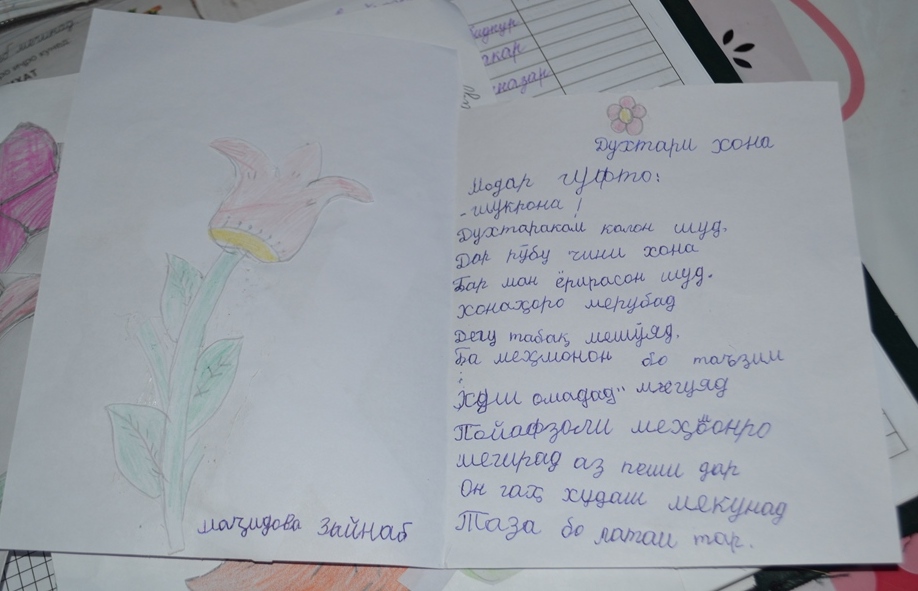 ХАТ
идкур
гкар
назар
Духтари хона
Модар гуфто:
- шукрона!
Духтаракам калон шуд.
Дар рӯбу чини хона
Бар ман ёрирасон шуд.
хонаҳоро мерубад
Дегу табақ мешӯяд.
Ба меҳмонон бо таъзим
"Хуш омадад" мегуяд
Пойафзоли меҳмонро
мегирад аз пеши дар
Он гаҳ худаш мекунад
Тоза бо латаи тар.
маҷидова Зайнаб